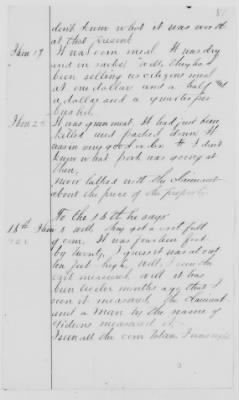 don't know what it was worth
at that present
Item 19 It was corn meal. It was dry
and in sacks. Well, they had
been selling us citizens meal
at one dollar and a half and
a dollar and a quarter per
bushel
Item 22 It was green meat. It had just been
killed and packed down. It
was in very good order. I don't
know what pork was going at
then,
never talked with the claimant
about the price of the property
To the 18th he says
18th Item 5 well they got a crib full
of corn. It was fourteen feet
by twenty, I guess it was about
ten feet high. Well, I seen the
crib measured, well it has
been twelve months ago that I
seen it measured, the claimant
and a man by the name of
Gideons measured it
I seen all the corn taken I was right